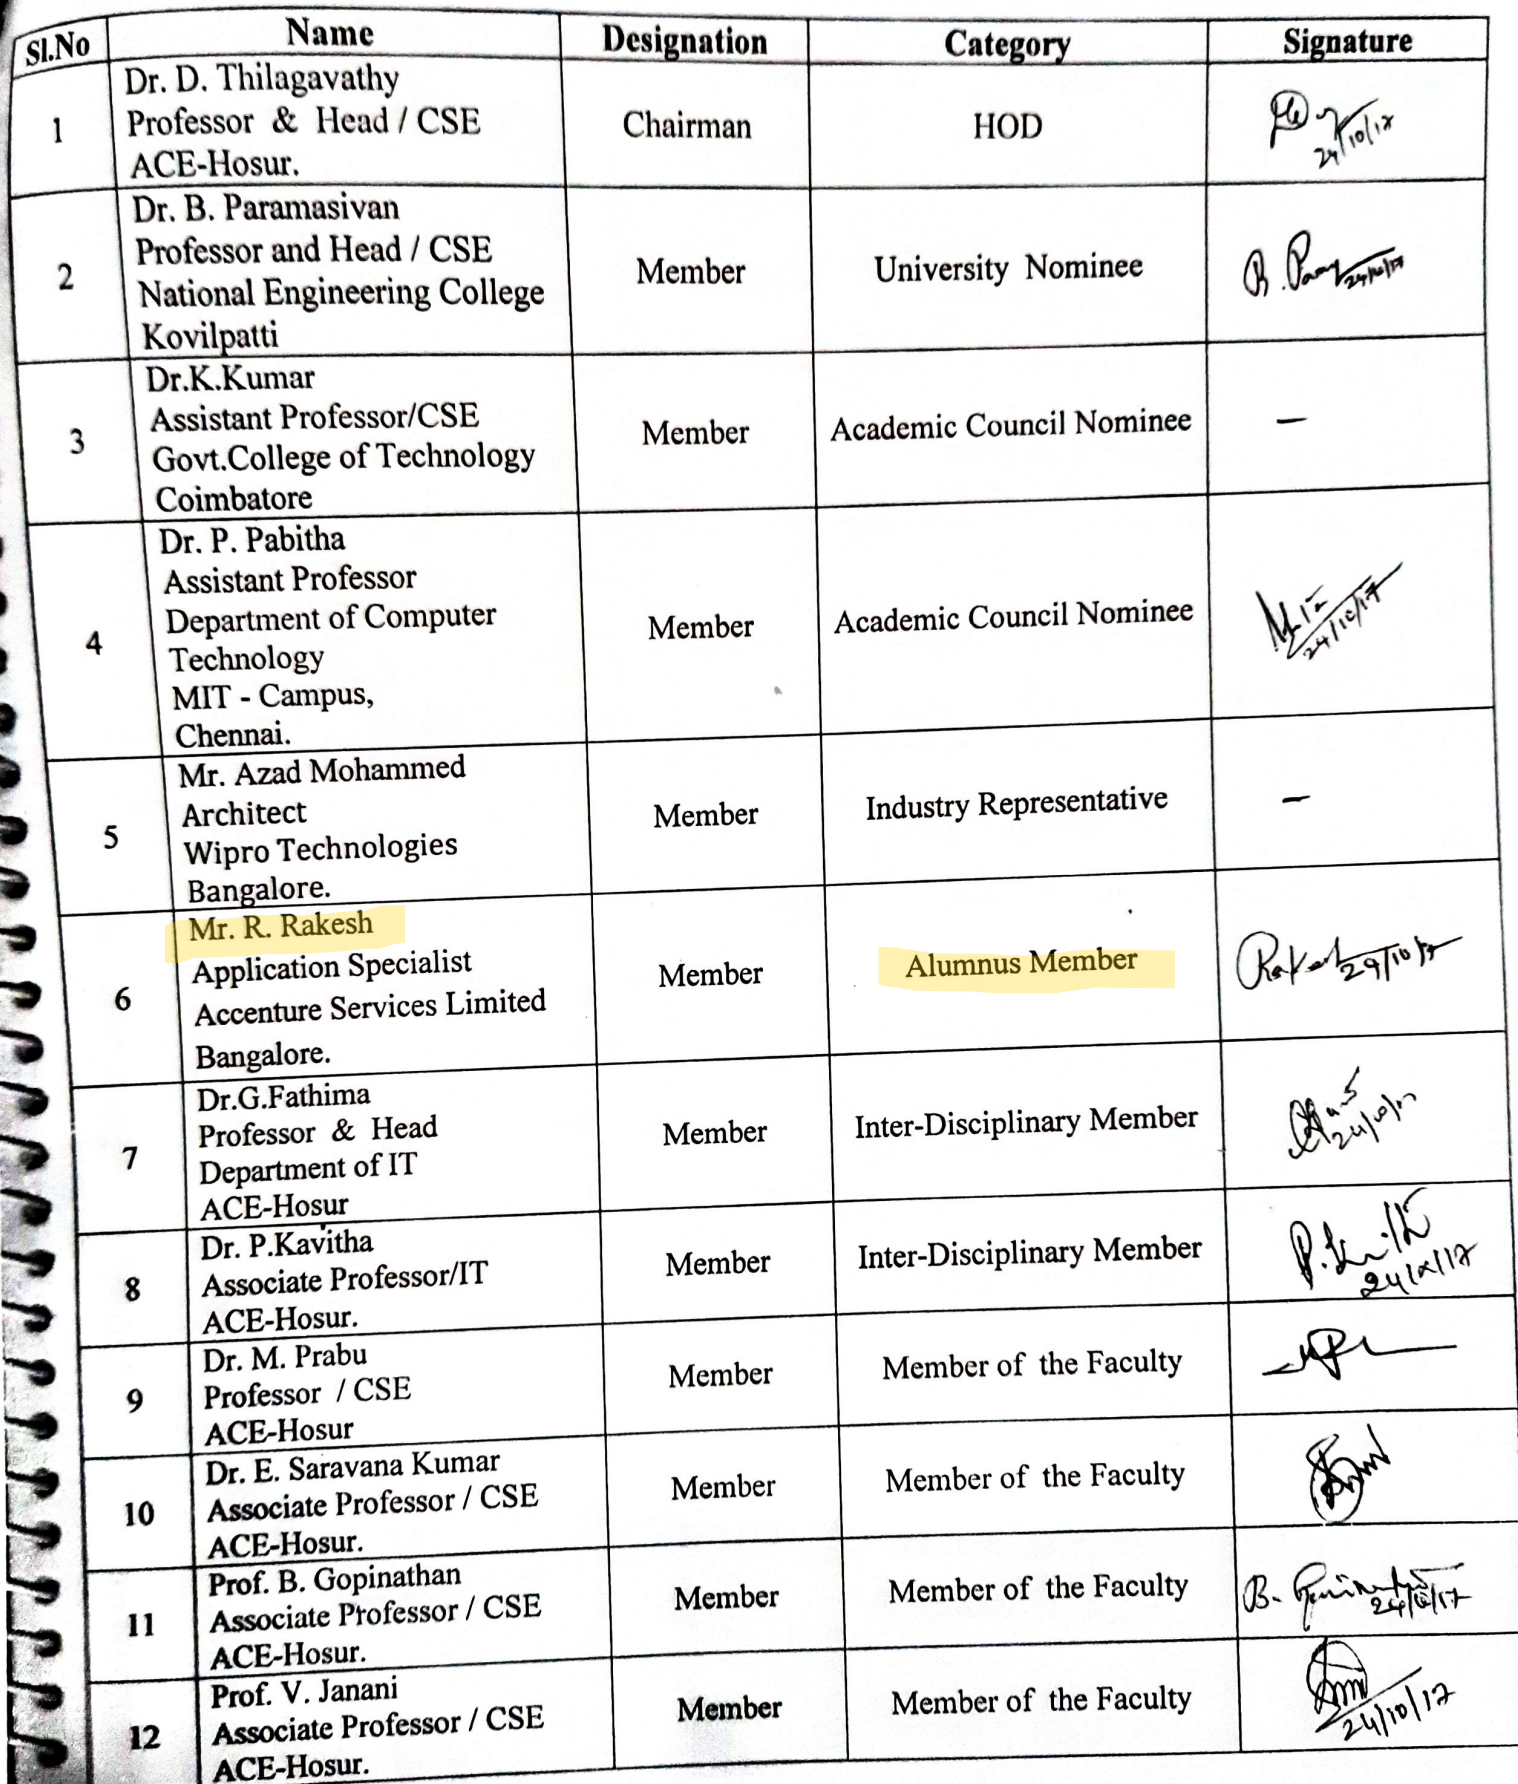 Sl.No Name Designation Category Signature
1 Dr. D. Thilagavathy
Professor & Head / CSE
ACE-Hosur. Chairman HOD
24/10/17
2 Dr. B. Paramasivan
Professor and Head / CSE
National Engineering College
Kovilpatti Member University Nominee
24/10/17
3 Dr.K.Kumar
Assistant Professor/CSE
Govt.College of Technology
Coimbatore Member Academic Council Nominee –
4 Dr. P. Pabitha
Assistant Professor
Department of Computer
Technology
MIT - Campus,
Chennai. Member Academic Council Nominee
24/10/17
5 Mr. Azad Mohammed
Architect
Wipro Technologies
Bangalore. Member Industry Representative –
6 Mr. R. Rakesh
Application Specialist
Accenture Services Limited
Bangalore. Member Alumnus Member
Rakesh
7 Dr.G.Fathima
Professor & Head
Department of IT
ACE-Hosur Member Inter-Disciplinary Member
8 Dr. P.Kavitha
Associate Professor/IT
ACE-Hosur. Member Inter-Disciplinary Member
9 Dr. M. Prabu
Professor / CSE
ACE-Hosur Member Member of the Faculty
10 Dr. E. Saravana Kumar
Associate Professor / CSE
ACE-Hosur. Member Member of the Faculty
11 Prof. B. Gopinathan
Associate Professor / CSE
ACE-Hosur. Member Member of the Faculty
24/10/17
12 Prof. V. Janani
Associate Professor / CSE
ACE-Hosur. Member Member of the Faculty
24/10/17